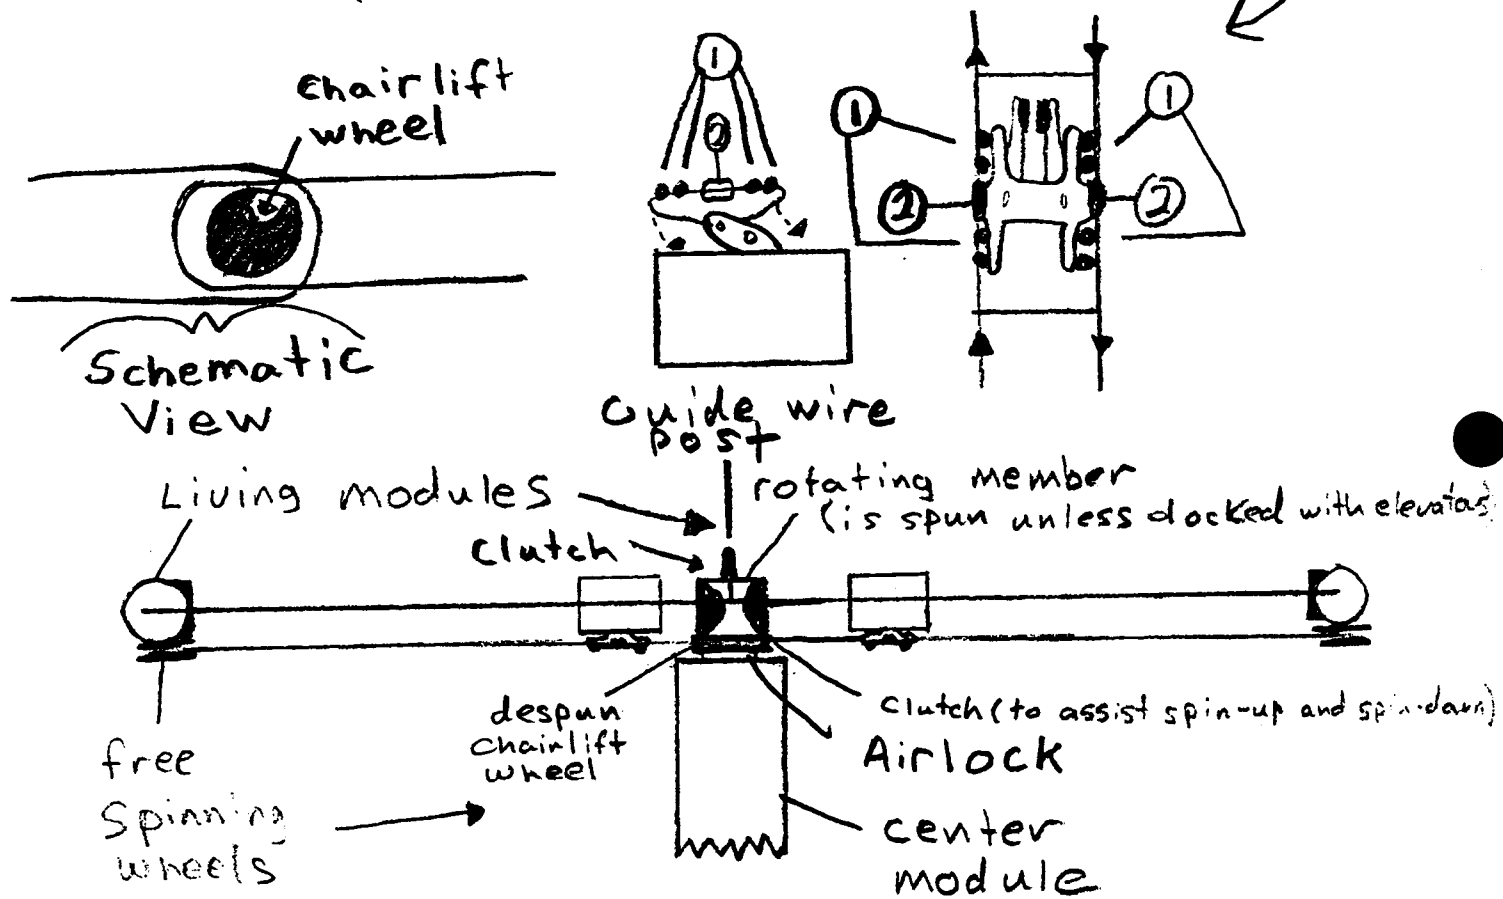 chairlift
wheel
1
2
1
1
2
2
Schematic
View
Guide wire
post
Living modules
rotating member
(is spun unless docked with elevators)
Clutch
despun
chairlift
wheel
clutch (to assist spin-up and spin-down)
Airlock
free
Spinning
wheels
center
module